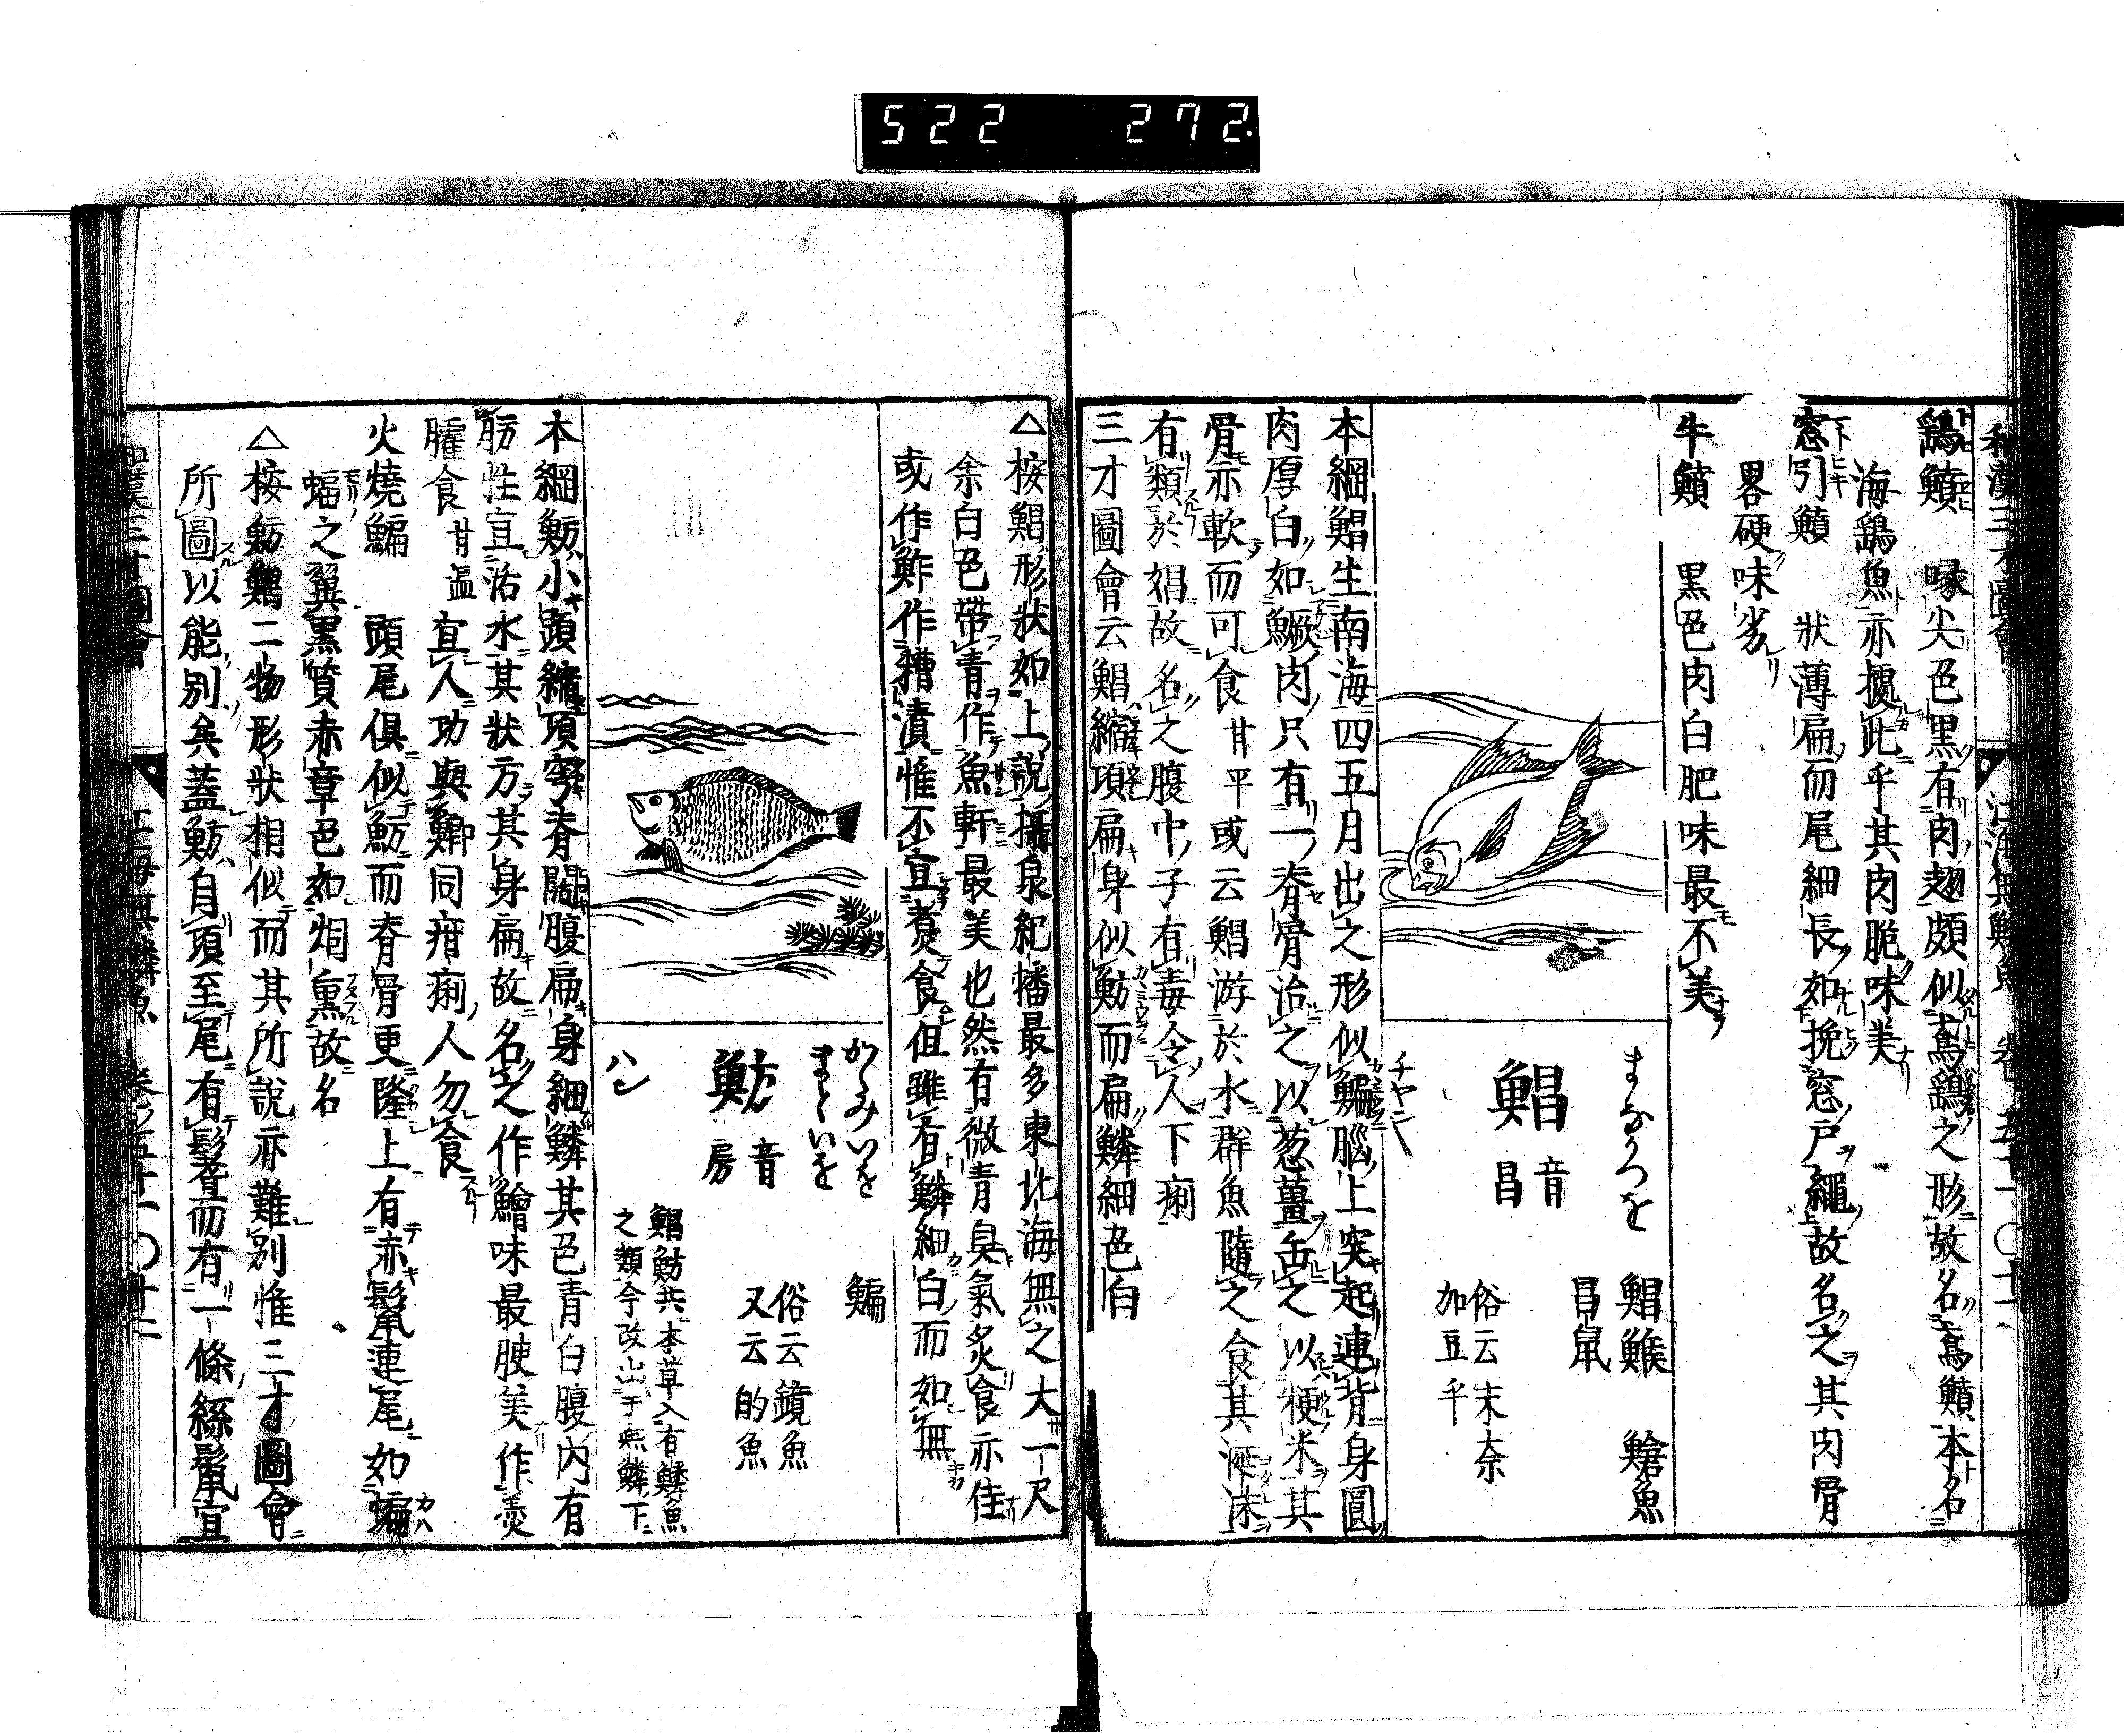 522 272.
和漢三才圖會 江海無鱗魚 卷ノ五十一 〇十一
鵄鱝 喙尖色黒有肉翅頗似鳶鵄之形故名鳶鱝本名
海鷂魚亦據此乎其肉脆味美
窓引鱝 狀薄扁而尾細長如挽窓戸繩故名之其肉骨
畧硬味劣
牛鱝 黒色肉白肥味最不美
まながつを
鯧 音昌
チヤン
鯧鯸 鱠魚
昌鼠
俗云末奈
加豆乎
本綱鯧生南海四五月出之形似鯿腦上突起連背身圓
肉厚白如鱖肉只有一脊骨治之以葱薑缶之以粳米其
骨亦軟而可食甘平或云鯧游於水群魚隨之食其涎沫
有類於娼故名之腹中子有毒令人下痢
三才圖會云鯧縮項扁身似魴而扁鱗細色白
△按鯧形狀如上說攝泉紀播最多東北海無之大一尺
余白色帶青作魚軒最美也然有微青臭氣炙食亦佳
或作鮓作糟漬惟不宜煑食但雖有鱗細白而如無
かゞみいを
まといを
魴 音房
ハン
鯿
俗云鏡魚
又云的魚
鯧魴共本草入有鱗魚
之類今改出于無鱗下
本綱魴小頭縮項穹脊闊腹扁身細鱗其色青白腹內有
肪性宜活水其狀方其身扁故名之作鱠味最腴美作羹
臛食甘温宜人功與鯽同疳痢人勿食
火燒鯿 頭尾俱似魴而脊骨更隆上有赤鬣連尾如蝙
蝠之翼黒質赤章色如烟熏故名
△按魴鯧二物形狀相似而其所說亦難別惟三才圖會
所圖以能別矣蓋魴自項至尾有鬐而有一條絲鬣宜
和漢三才圖會 江海無鱗魚 卷ノ五十一 〇廿二